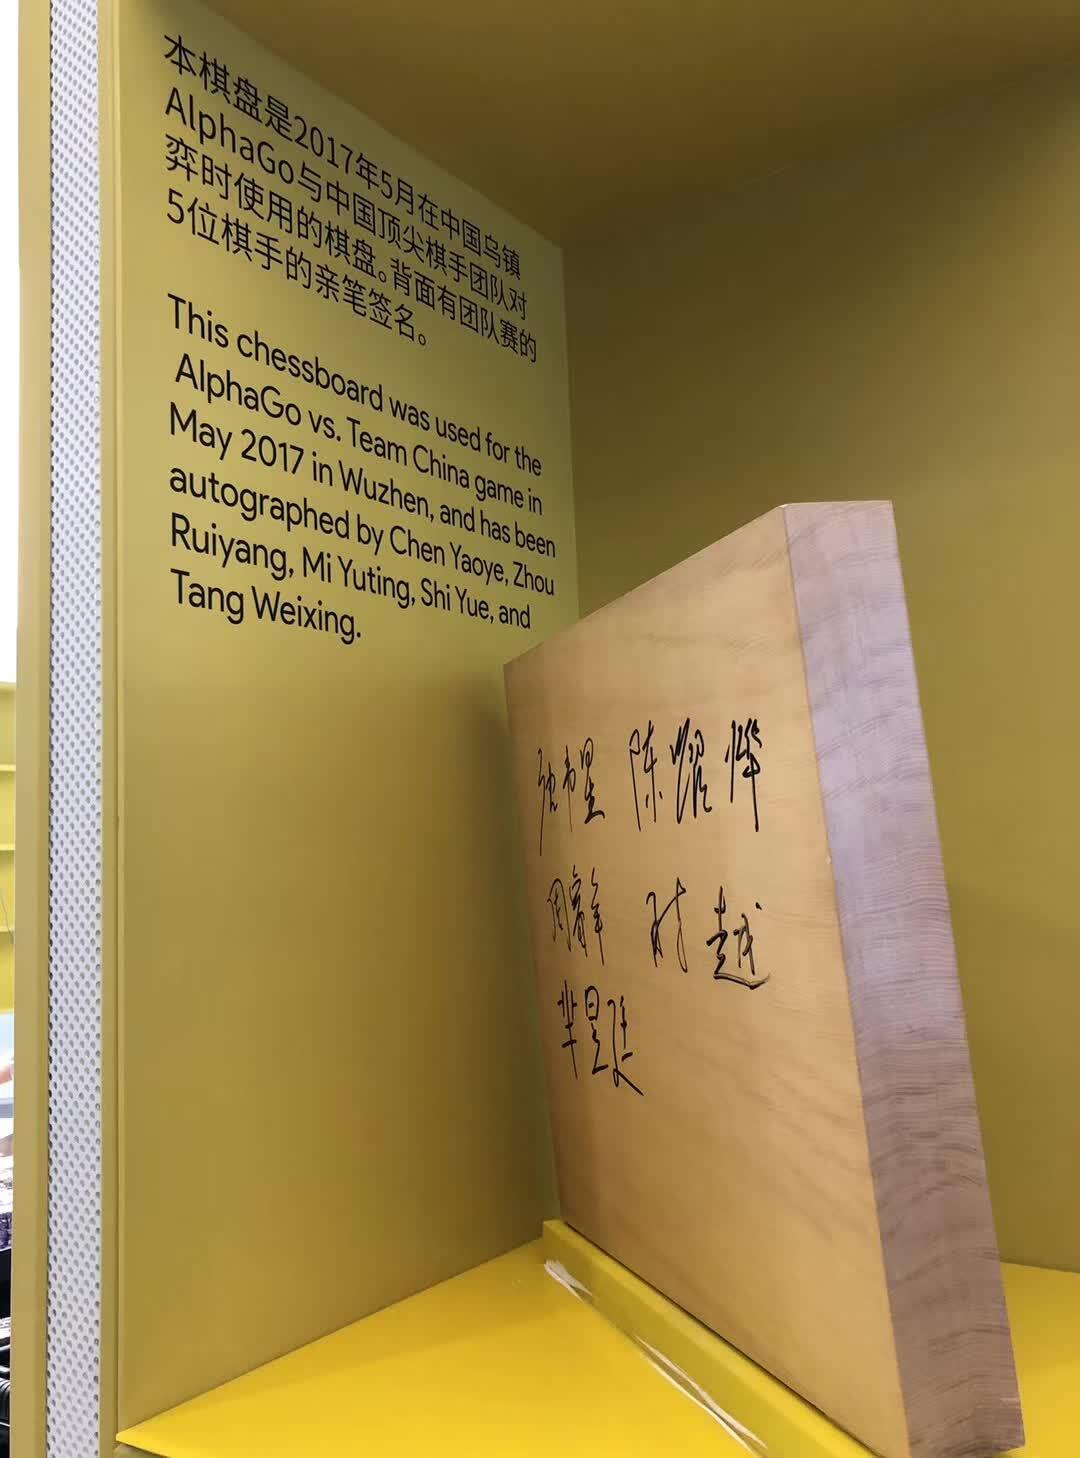 本棋盘是2017年5月在中国乌镇
AlphaGo与中国顶尖棋手团队对
弈时使用的棋盘。背面有团队赛的
5位棋手的亲笔签名。
This chessboard was used for the
AlphaGo vs. Team China game in
May 2017 in Wuzhen, and has been
autographed by Chen Yaoye, Zhou
Ruiyang, Mi Yuting, Shi Yue, and
Tang Weixing.
唐韦星 陈耀烨
周睿羊 时越
芈昱廷